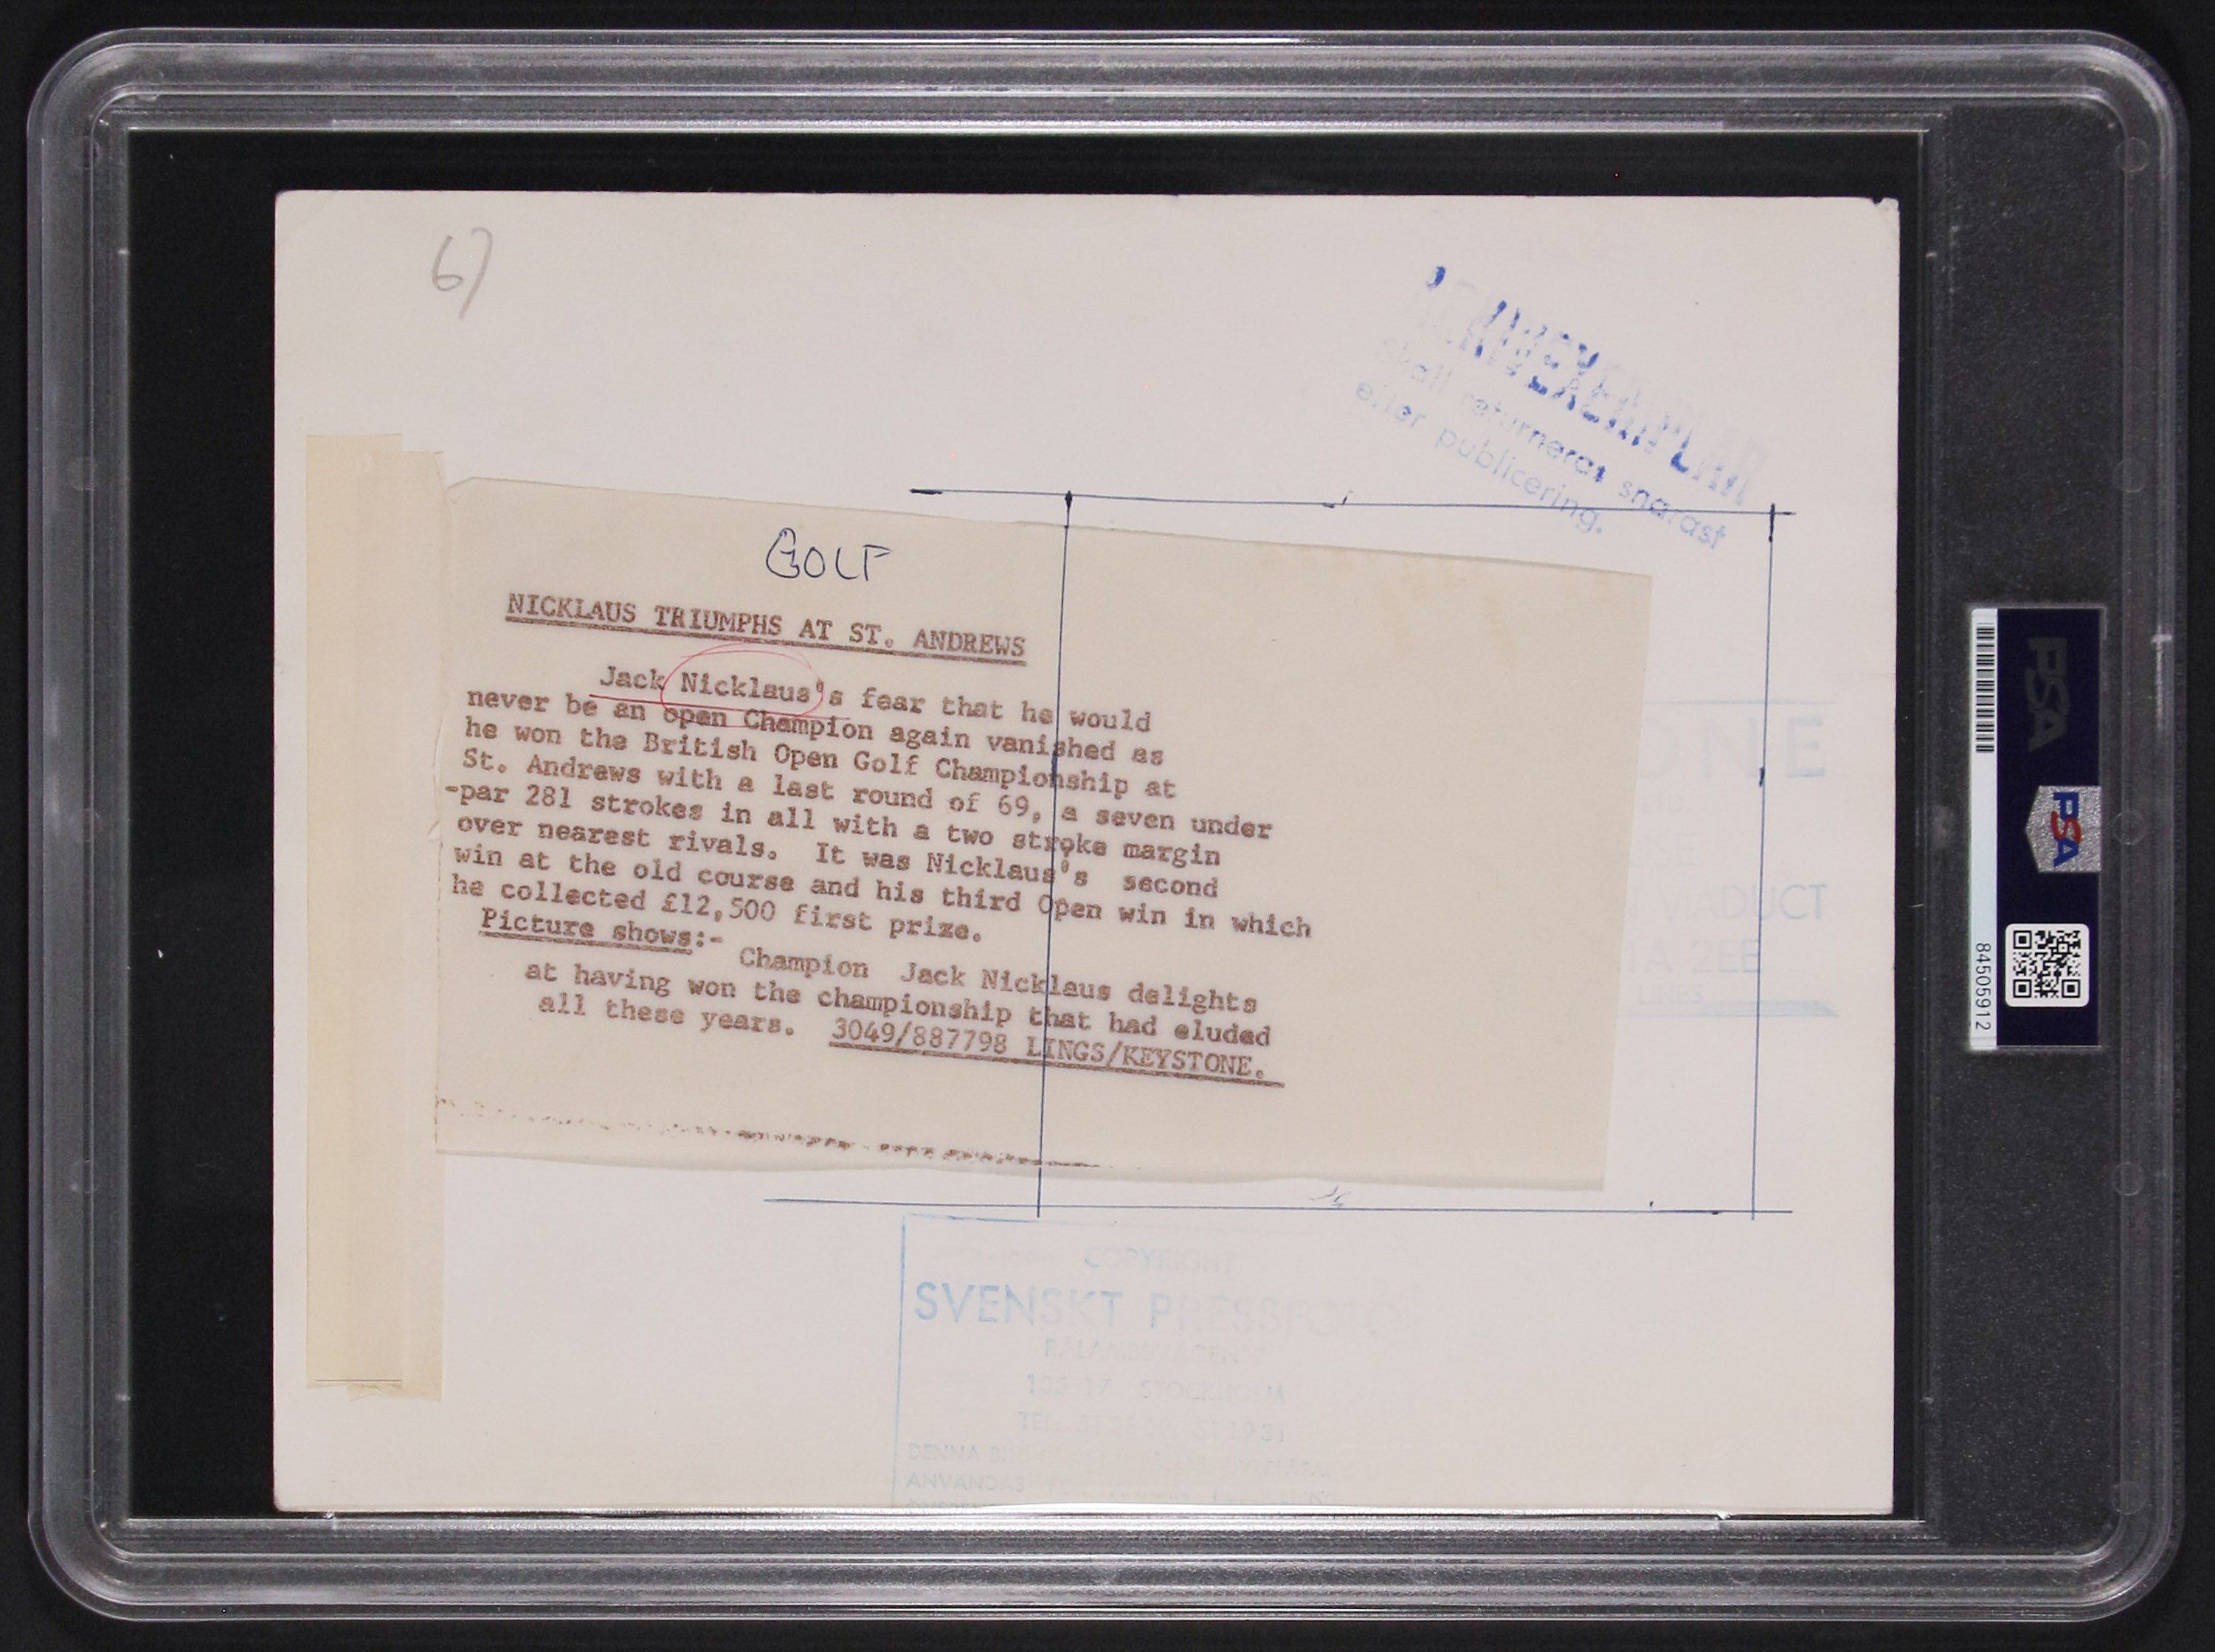 6)
Skall returneras snarast
efter publicering.
GOLF
NICKLAUS TRIUMPHS AT ST. ANDREWS
Jack Nicklaus's fear that he would
never be an open Champion again vanished as
he won the British Open Golf Championship at
St. Andrews with a last round of 69, a seven under
-par 281 strokes in all with a two stroke margin
over nearest rivals. It was Nicklaus's second
win at the old course and his third Open win in which
he collected £12,500 first prize.
Picture shows:- Champion Jack Nicklaus delights
at having won the championship that had eluded
all these years. 3049/887798 LINGS/KEYSTONE.
ONE
VIADUCT
1A 2EE
LINES
COPYRIGHT
SVENSKT PRESSFOTO
RÅLAMBSVÄGEN 7
105 17 STOCKHOLM
TEL.
DENNA BILD
ANVÄNDAS
PSA
PSA
84505912